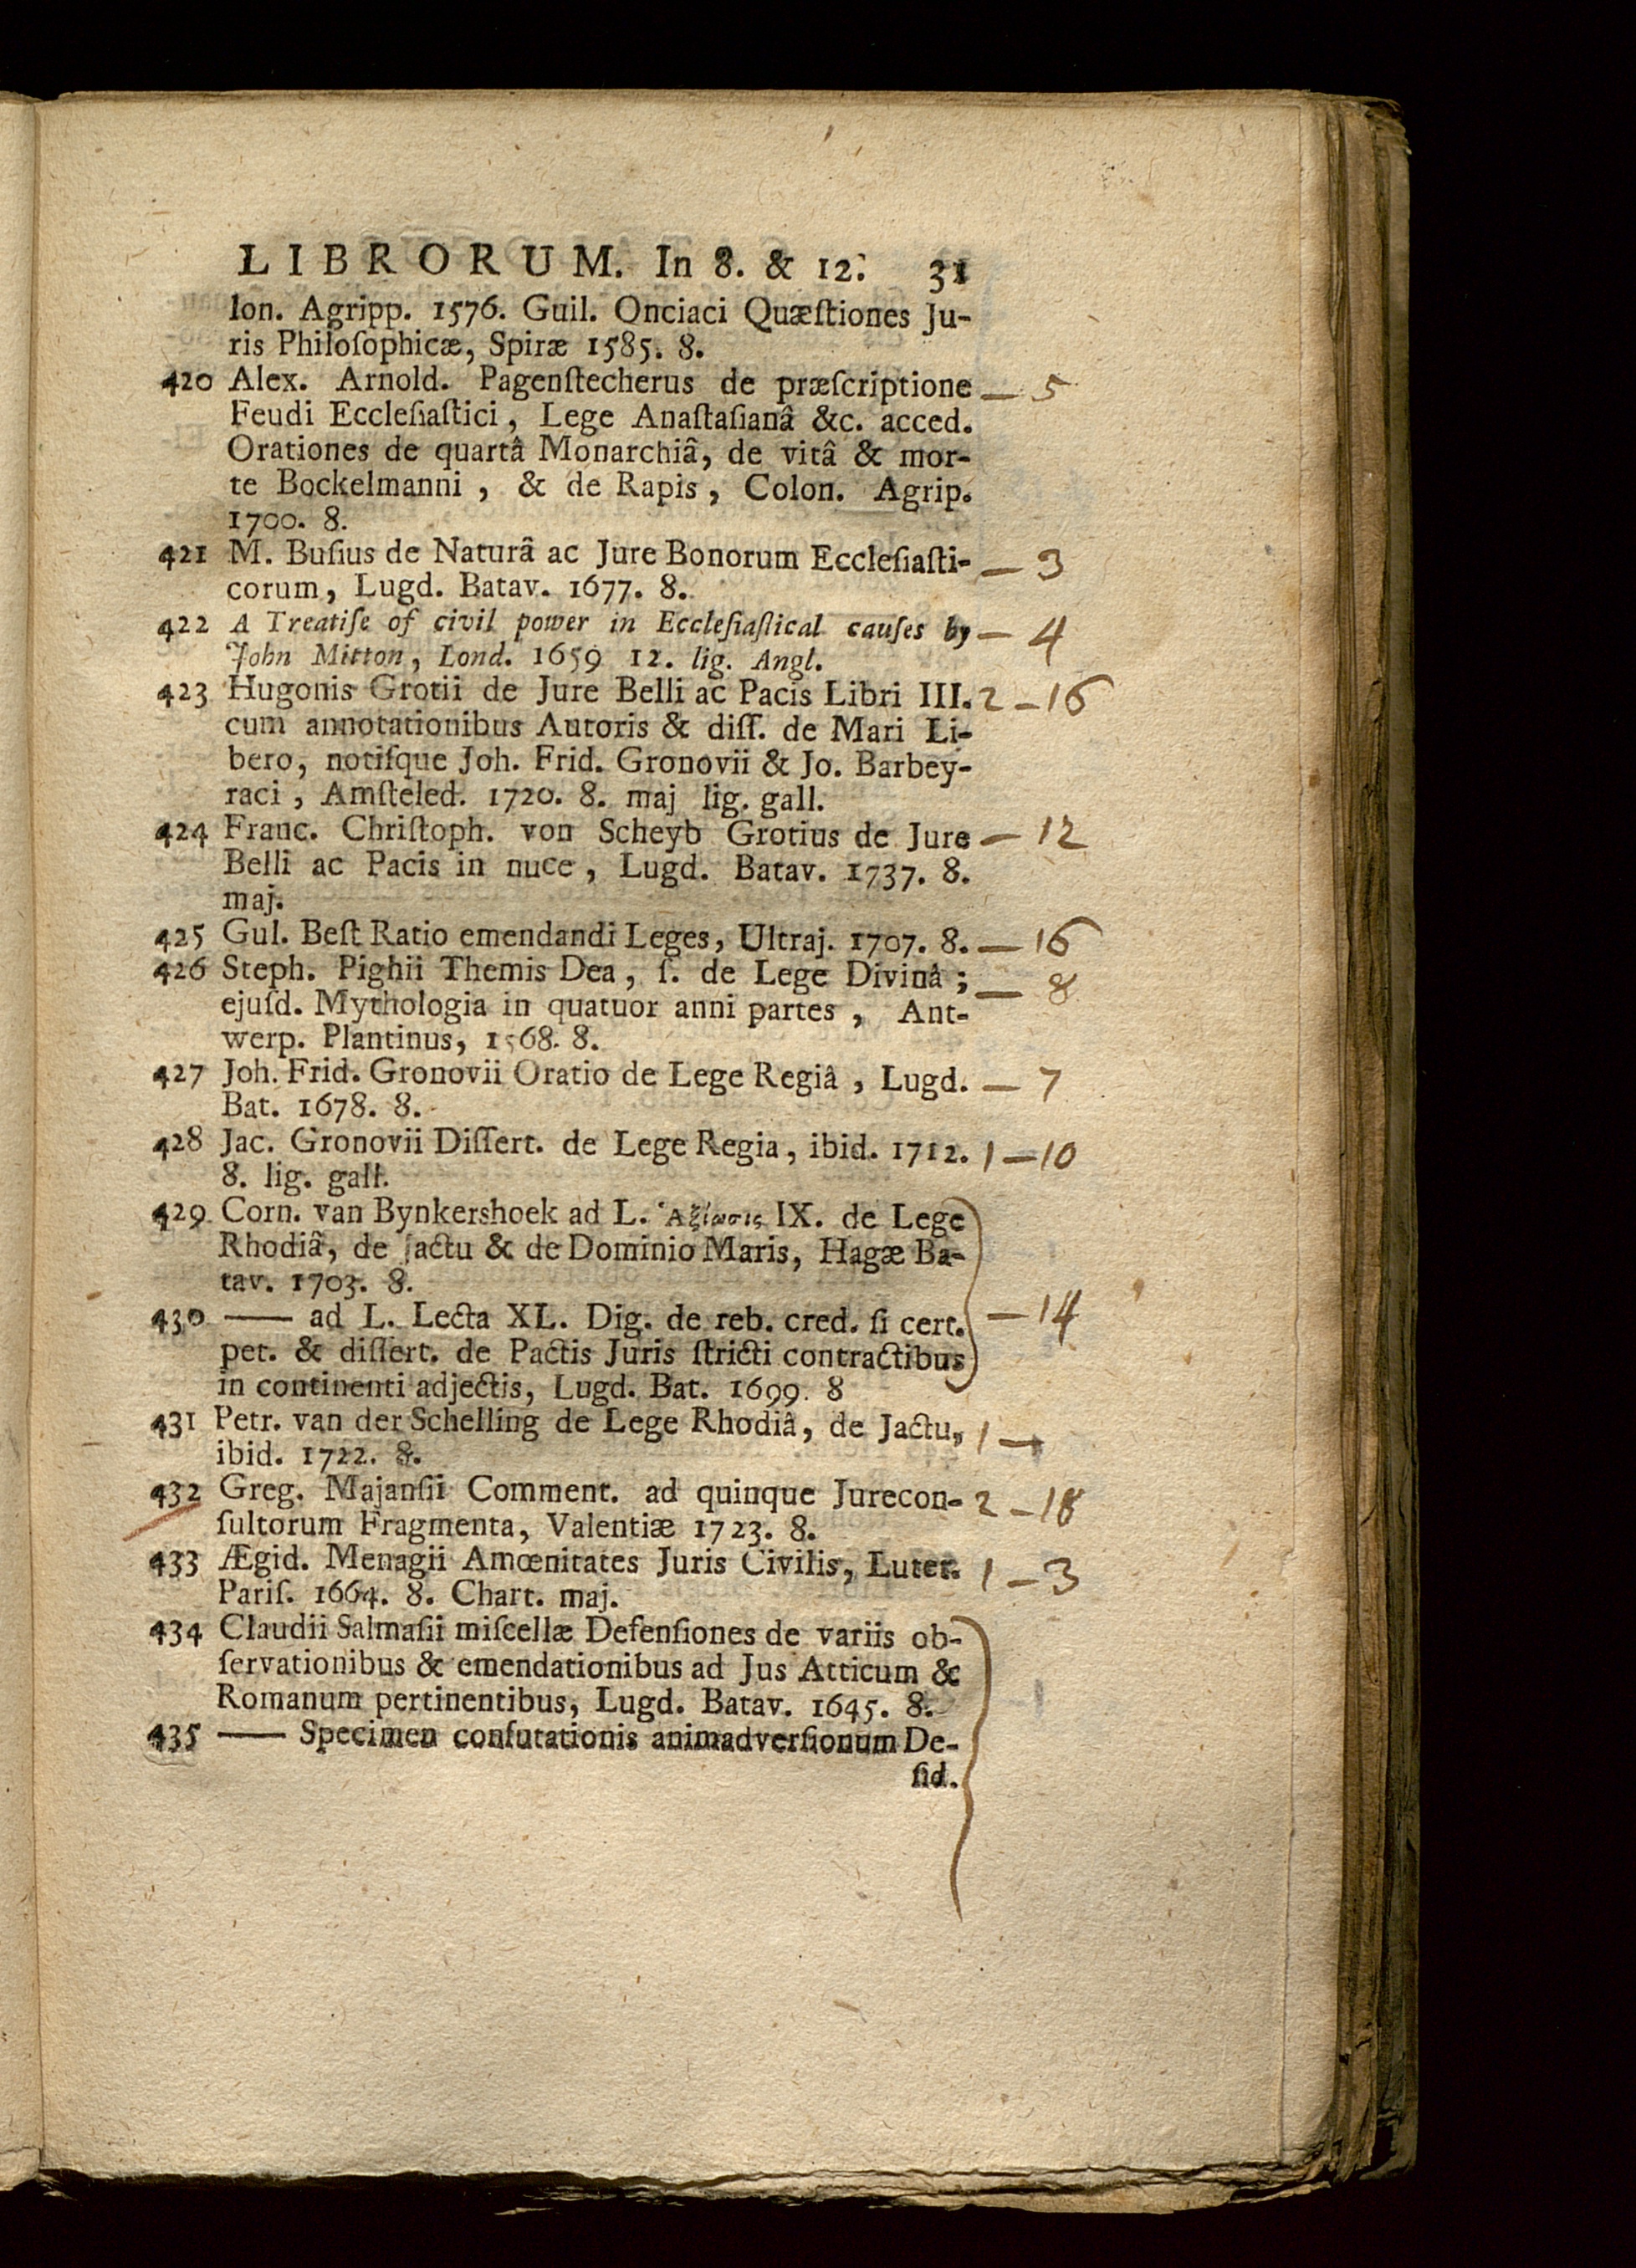 LIBRORUM. In 8. & 12. 31
lon. Agripp. 1576. Guil. Onciaci Quæſtiones Ju-
ris Philoſophicæ, Spiræ 1585. 8.
420 Alex. Arnold. Pagenſtecherus de præſcriptione — 5
Feudi Eccleſiaſtici, Lege Anaſtaſianâ &c. acced.
Orationes de quartâ Monarchiâ, de vitâ & mor-
te Bockelmanni, & de Rapis, Colon. Agrip.
1700. 8.
421 M. Buſius de Naturâ ac Jure Bonorum Eccleſiaſti- — 3
corum, Lugd. Batav. 1677. 8.
422 A Treatiſe of civil power in Eccleſiaſtical cauſes by — 4
John Mitton, Lond. 1659 12. lig. Angl.
423 Hugonis Grotii de Jure Belli ac Pacis Libri III. 2 — 16
cum annotationibus Autoris & diſſ. de Mari Li-
bero, notiſque Joh. Frid. Gronovii & Jo. Barbey-
raci, Amſteled. 1720. 8. maj lig. gall.
424 Franc. Chriſtoph. von Scheyb Grotius de Jure — 12
Belli ac Pacis in nuce, Lugd. Batav. 1737. 8.
maj.
425 Gul. Beſt Ratio emendandi Leges, Ultraj. 1707. 8. — 16
426 Steph. Pighii Themis Dea, ſ. de Lege Divinâ; — 8
ejuſd. Mythologia in quatuor anni partes, Ant-
werp. Plantinus, 1568. 8.
427 Joh. Frid. Gronovii Oratio de Lege Regiâ, Lugd. — 7
Bat. 1678. 8.
428 Jac. Gronovii Diſſert. de Lege Regia, ibid. 1712. 1 — 10
8. lig. gall.
429 Corn. van Bynkershoek ad L. Ἀξίωσις IX. de Lege
Rhodiâ, de jactu & de Dominio Maris, Hagæ Ba-
tav. 1703. 8.
430 —— ad L. Lecta XL. Dig. de reb. cred. ſi cert. — 14
pet. & diſſert. de Pactis Juris ſtricti contractibus
in continenti adjectis, Lugd. Bat. 1699. 8
431 Petr. van der Schelling de Lege Rhodiâ, de Jactu, 1 —
ibid. 1722. 8.
432 Greg. Majanſii Comment. ad quinque Jurecon- 2 — 18
ſultorum Fragmenta, Valentiæ 1723. 8.
433 Ægid. Menagii Amœnitates Juris Civilis, Lutet. 1 — 3
Pariſ. 1664. 8. Chart. maj.
434 Claudii Salmaſii miſcellæ Defenſiones de variis ob-
ſervationibus & emendationibus ad Jus Atticum &
Romanum pertinentibus, Lugd. Batav. 1645. 8.
435 —— Specimen confutationis animadverſionum De-
ſid.